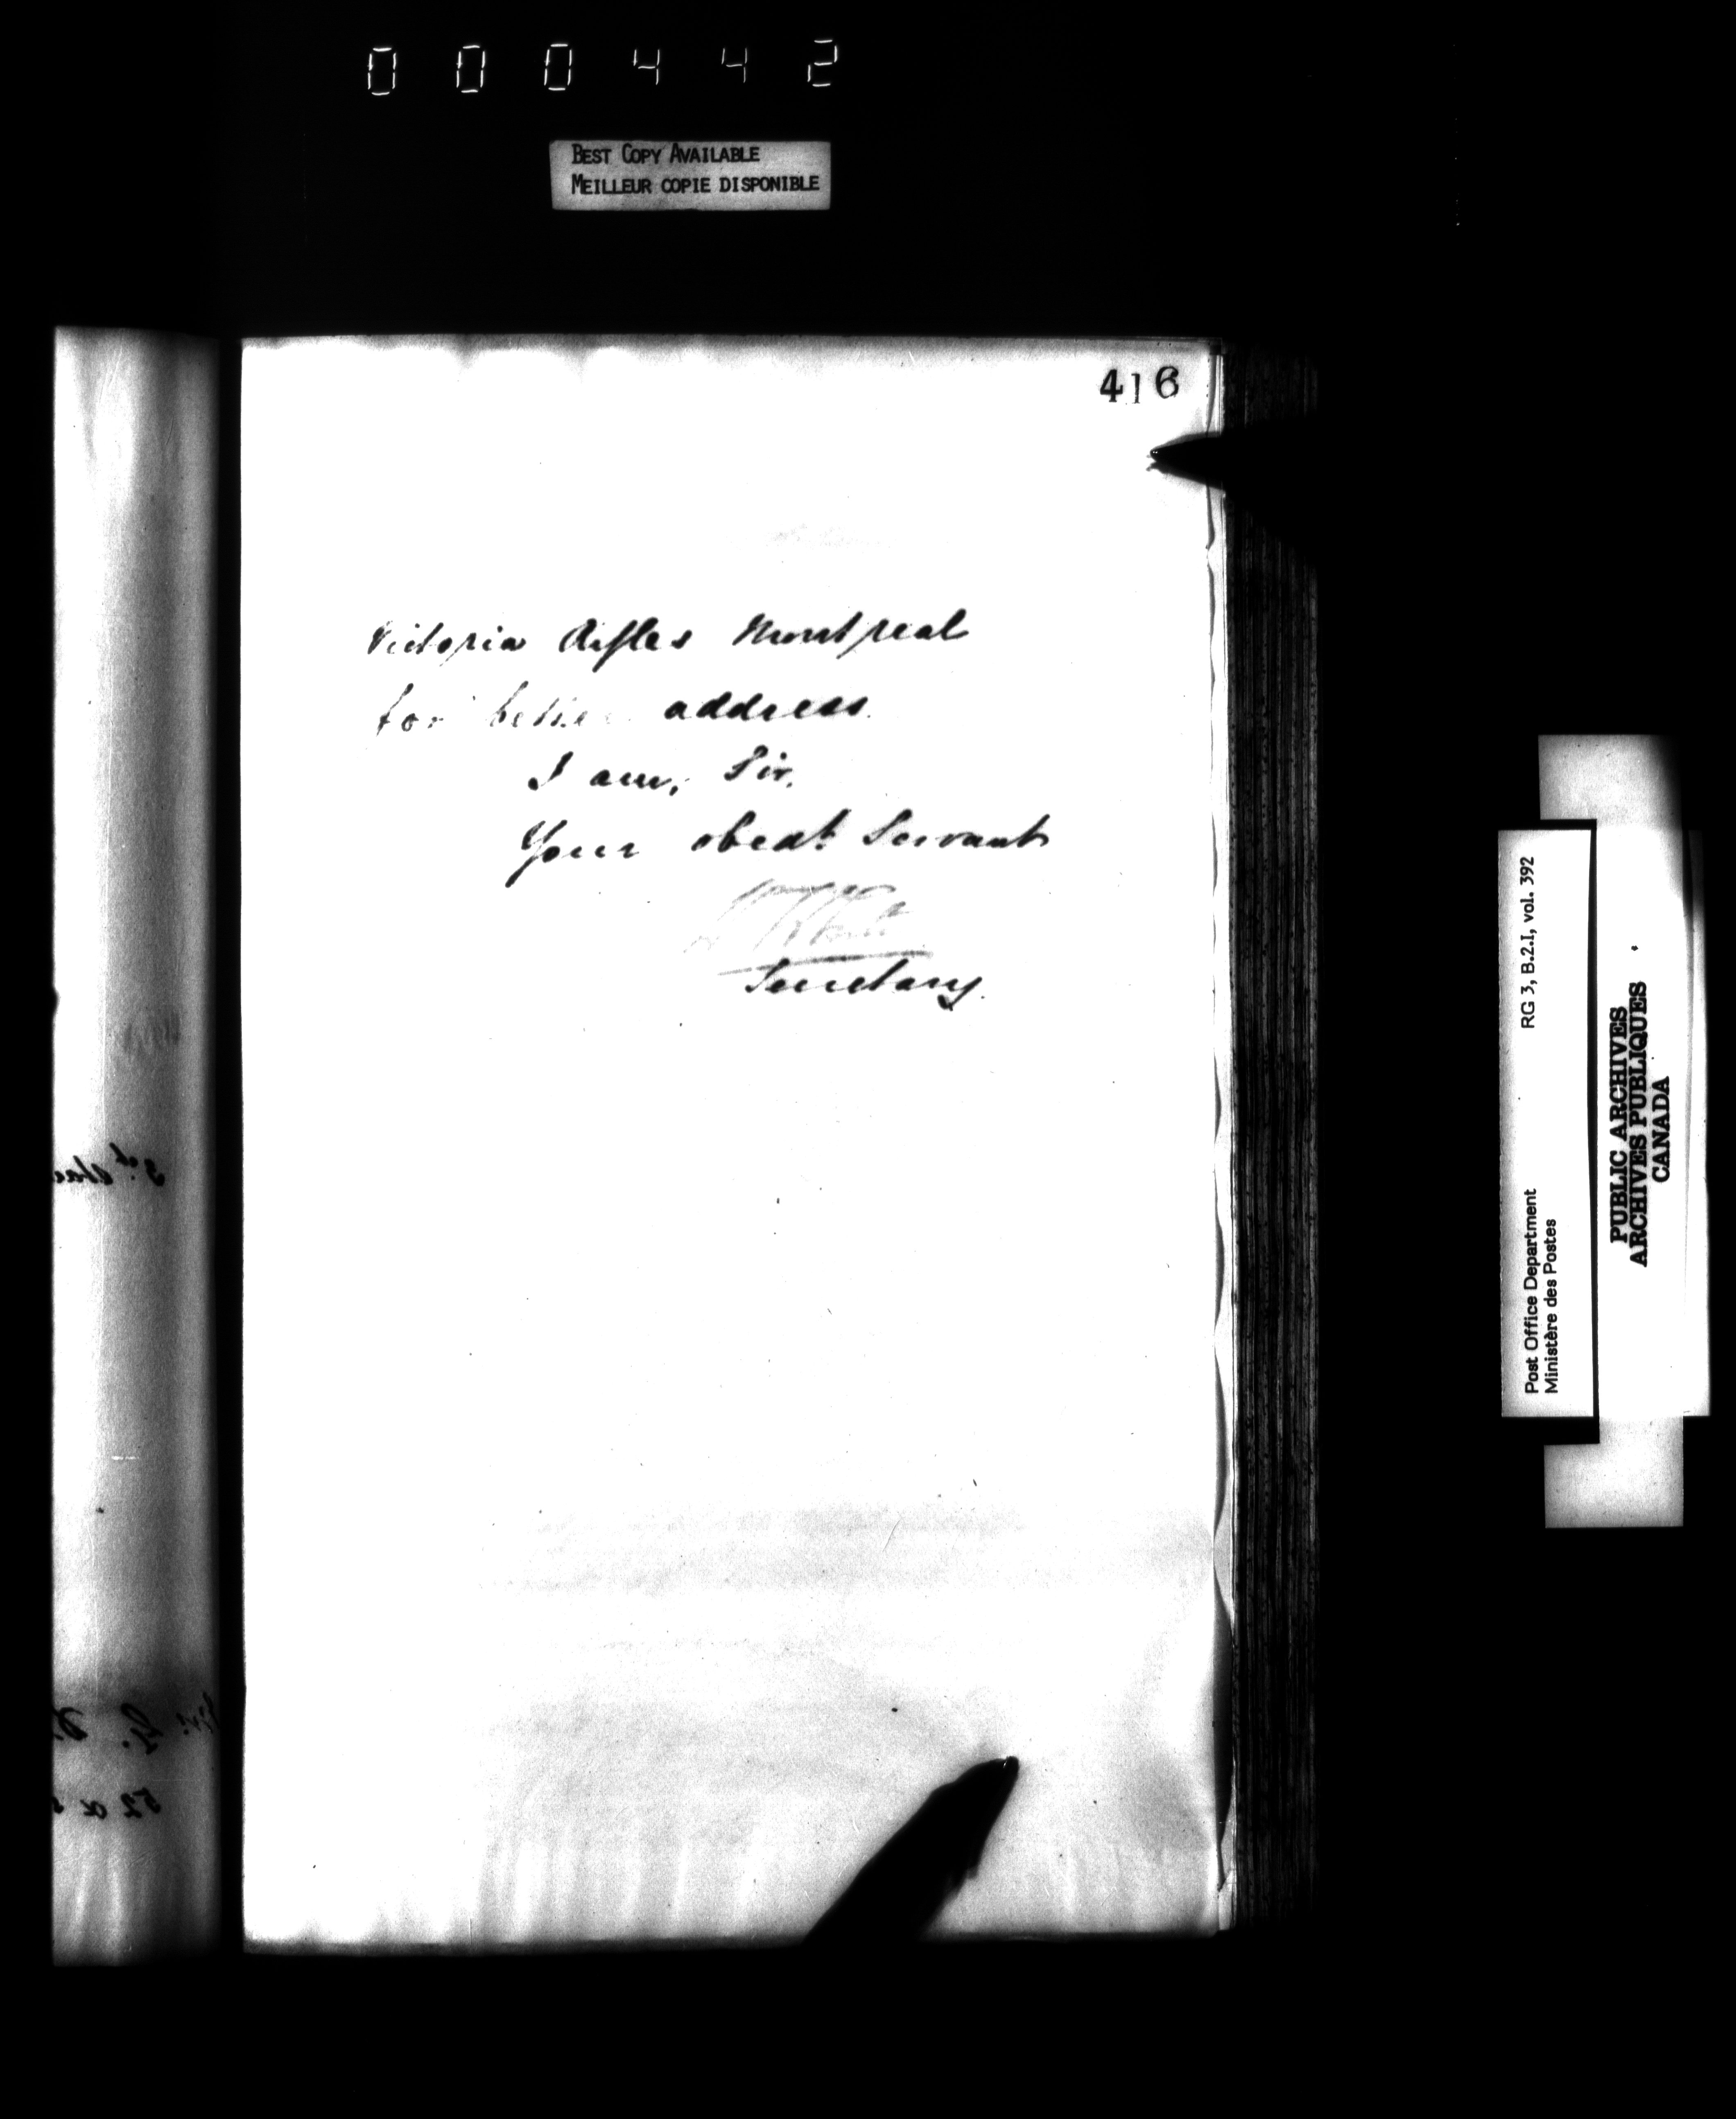 000442
BEST COPY AVAILABLE
MEILLEUR COPIE DISPONIBLE
416
Victoria Rifles Montreal
for better address.
I am, Sir,
Your obedt Servant
Secretary.
RG 3, B.2.I, vol. 392
Post Office Department
Ministère des Postes
PUBLIC ARCHIVES
ARCHIVES PUBLIQUES
CANADA